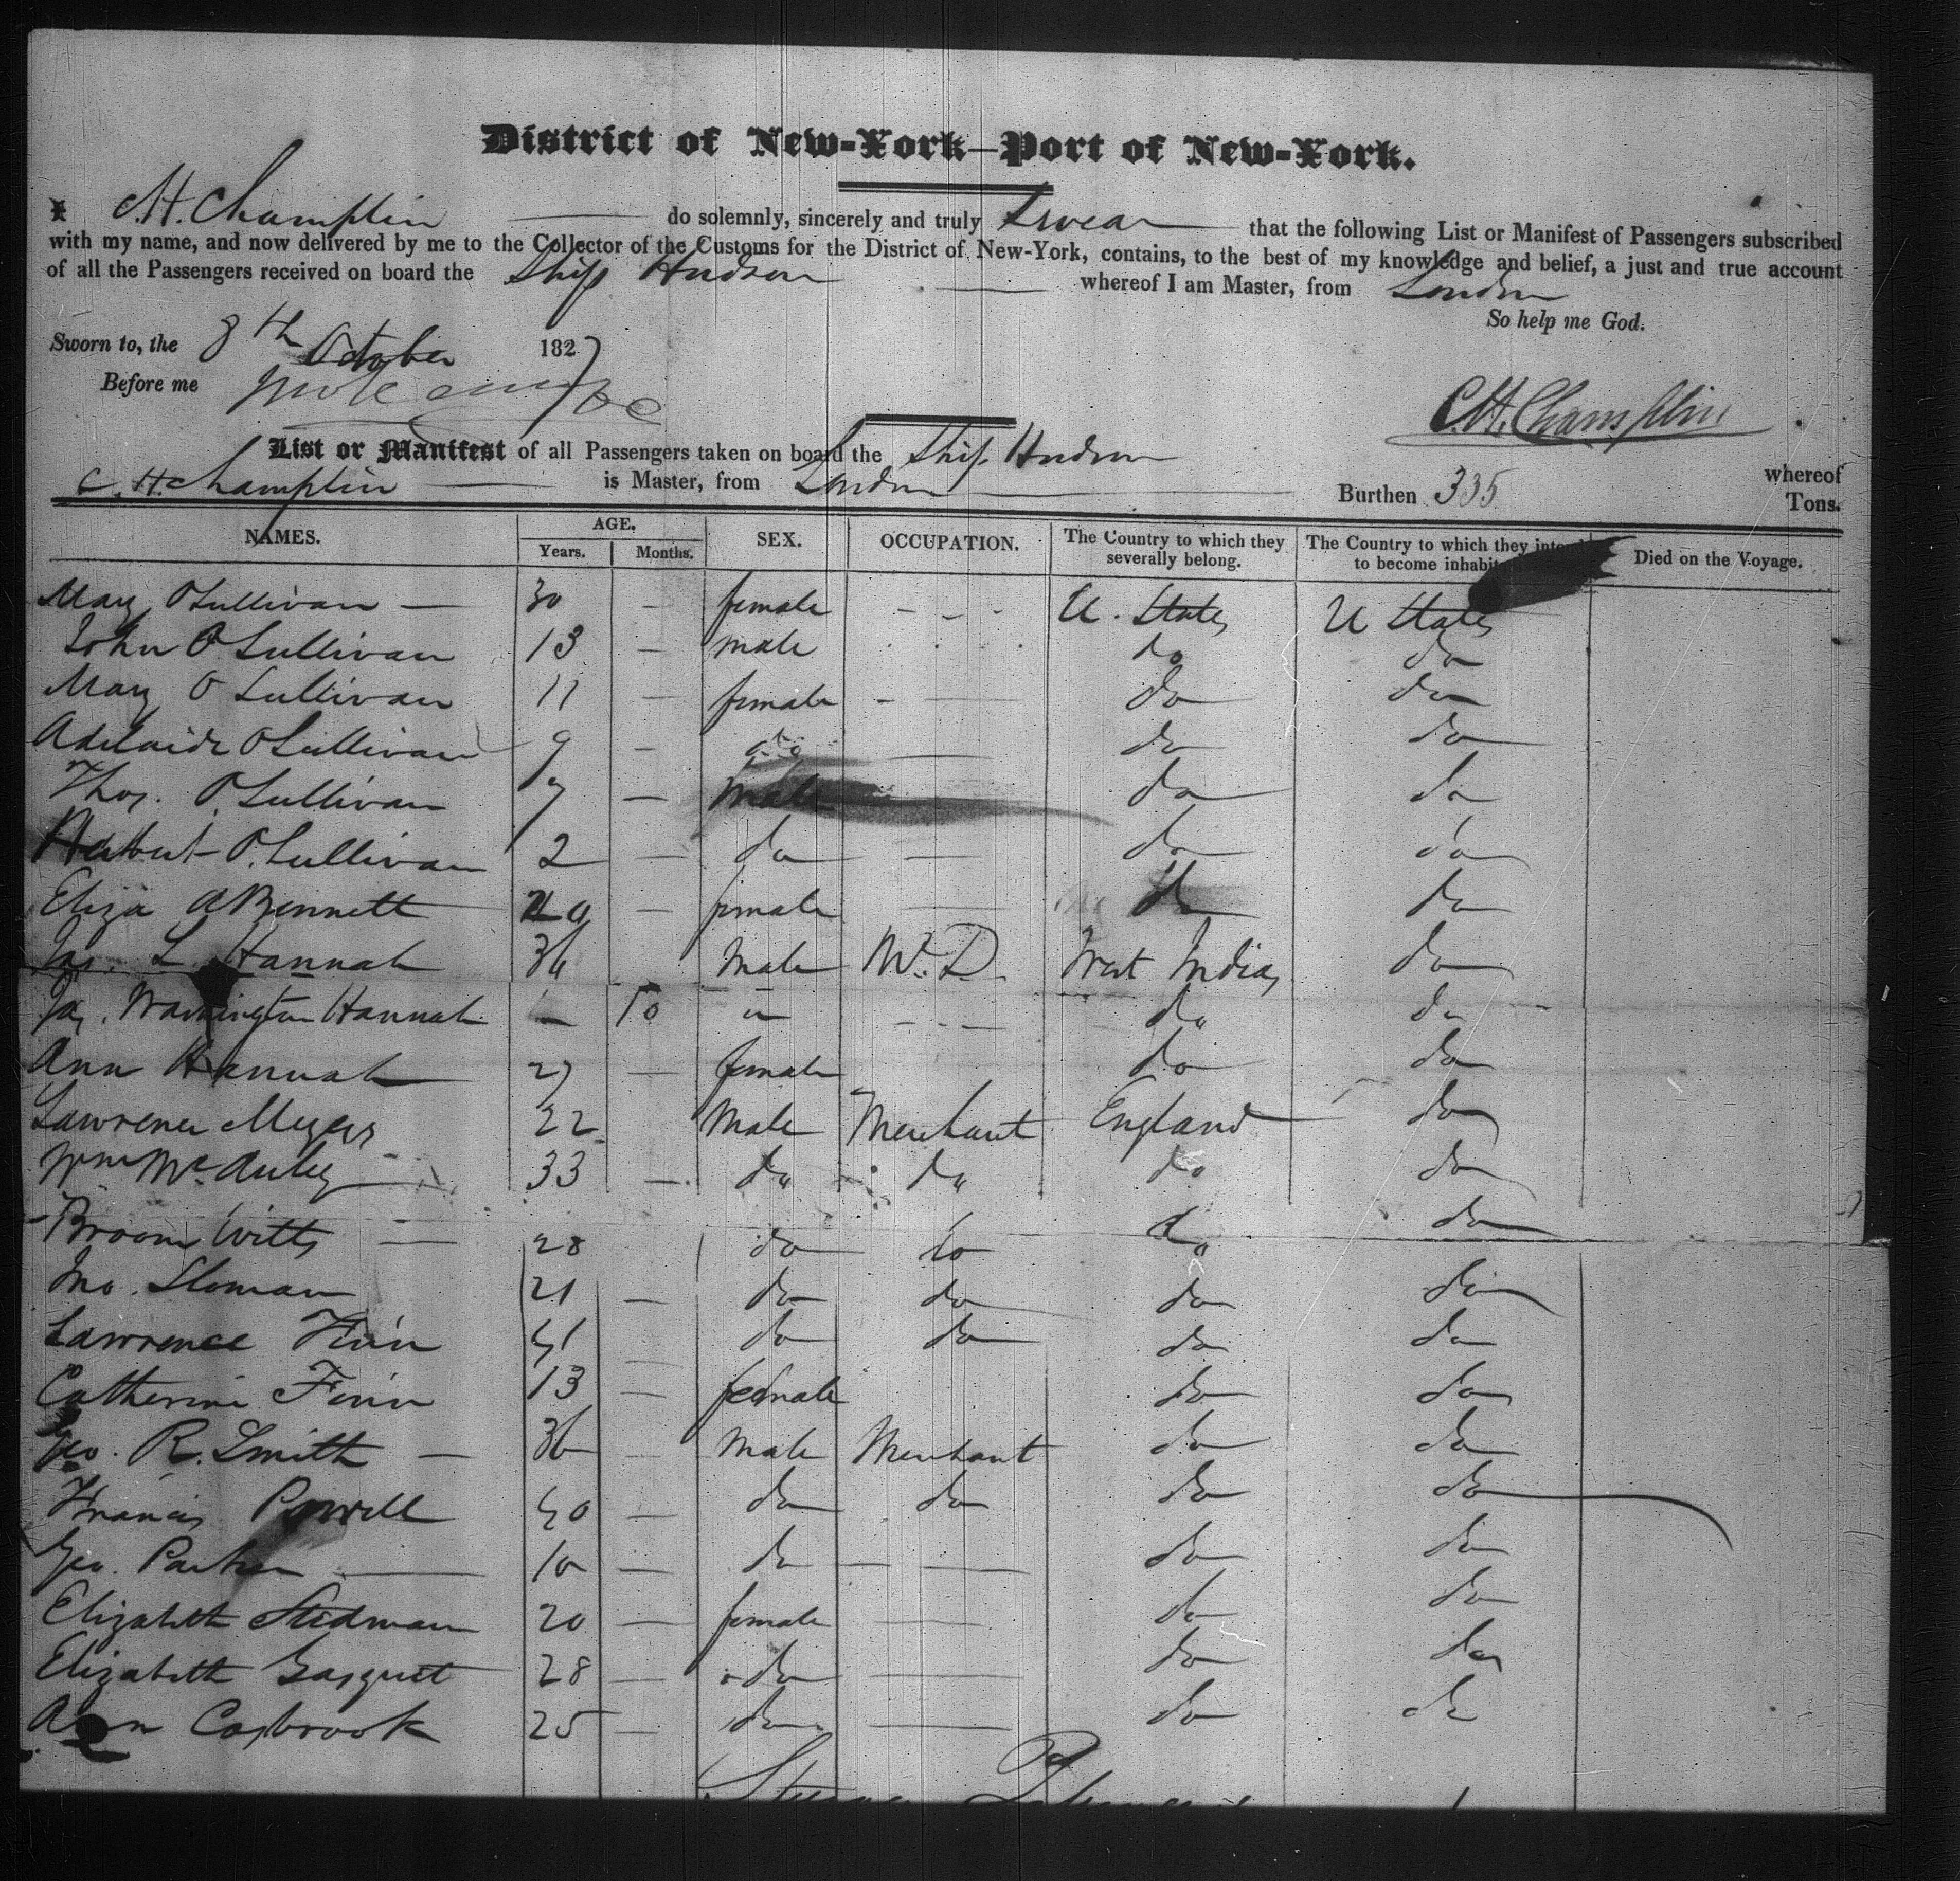 District of New-York—Port of New-York.
I C.H. Champlin do solemnly, sincerely and truly Swear that the following List or Manifest of Passengers subscribed
with my name, and now delivered by me to the Collector of the Customs for the District of New-York, contains, to the best of my knowledge and belief, a just and true account
of all the Passengers received on board the Ship Hudson whereof I am Master, from London
So help me God.
Sworn to, the 8th October 1827
Before me
C.H. Champlin
List or Manifest of all Passengers taken on board the Ship Hudson whereof
C. H. Champlin is Master, from London Burthen 335 Tons.
NAMES. AGE. Years. Months. SEX. OCCUPATION. The Country to which they severally belong. The Country to which they to become Died on the Voyage.
Mary O'Sullivan — 30 — female - - - U. States U States
John O'Sullivan 13 — male do do
Mary O'Sullivan 11 — female - — do do
Adelaide O'Sullivan 9 — do — do do
Thos. O'Sullivan 7 — Male — do do
O'Sullivan 2 — do — do do
Eliza A Bennett — female — do do
Jas. L. Hannah 36 Male M.D. West Indias do
Jas. Hannah — 10 - - - do do
Ann Hannah 27 — female do do
Lawrence Myers 22 Male Merchant England do
Wm 33 — do do do do
Broom Witts — 28 do do do do
Jno. Sloman 21 — do do do do
Lawrence Finn 41 do do do do
Catherine Finn 13 — female do do
Geo. R. Smith — 36 Male Merchant do do
Francis Powell 40 — do do do do
Geo. Parker — 10 — do — do do
Elizabeth Stedman 20 — female — do do
Elizabeth Gasquet 28 — do — do do
Ann 25 — do — do do